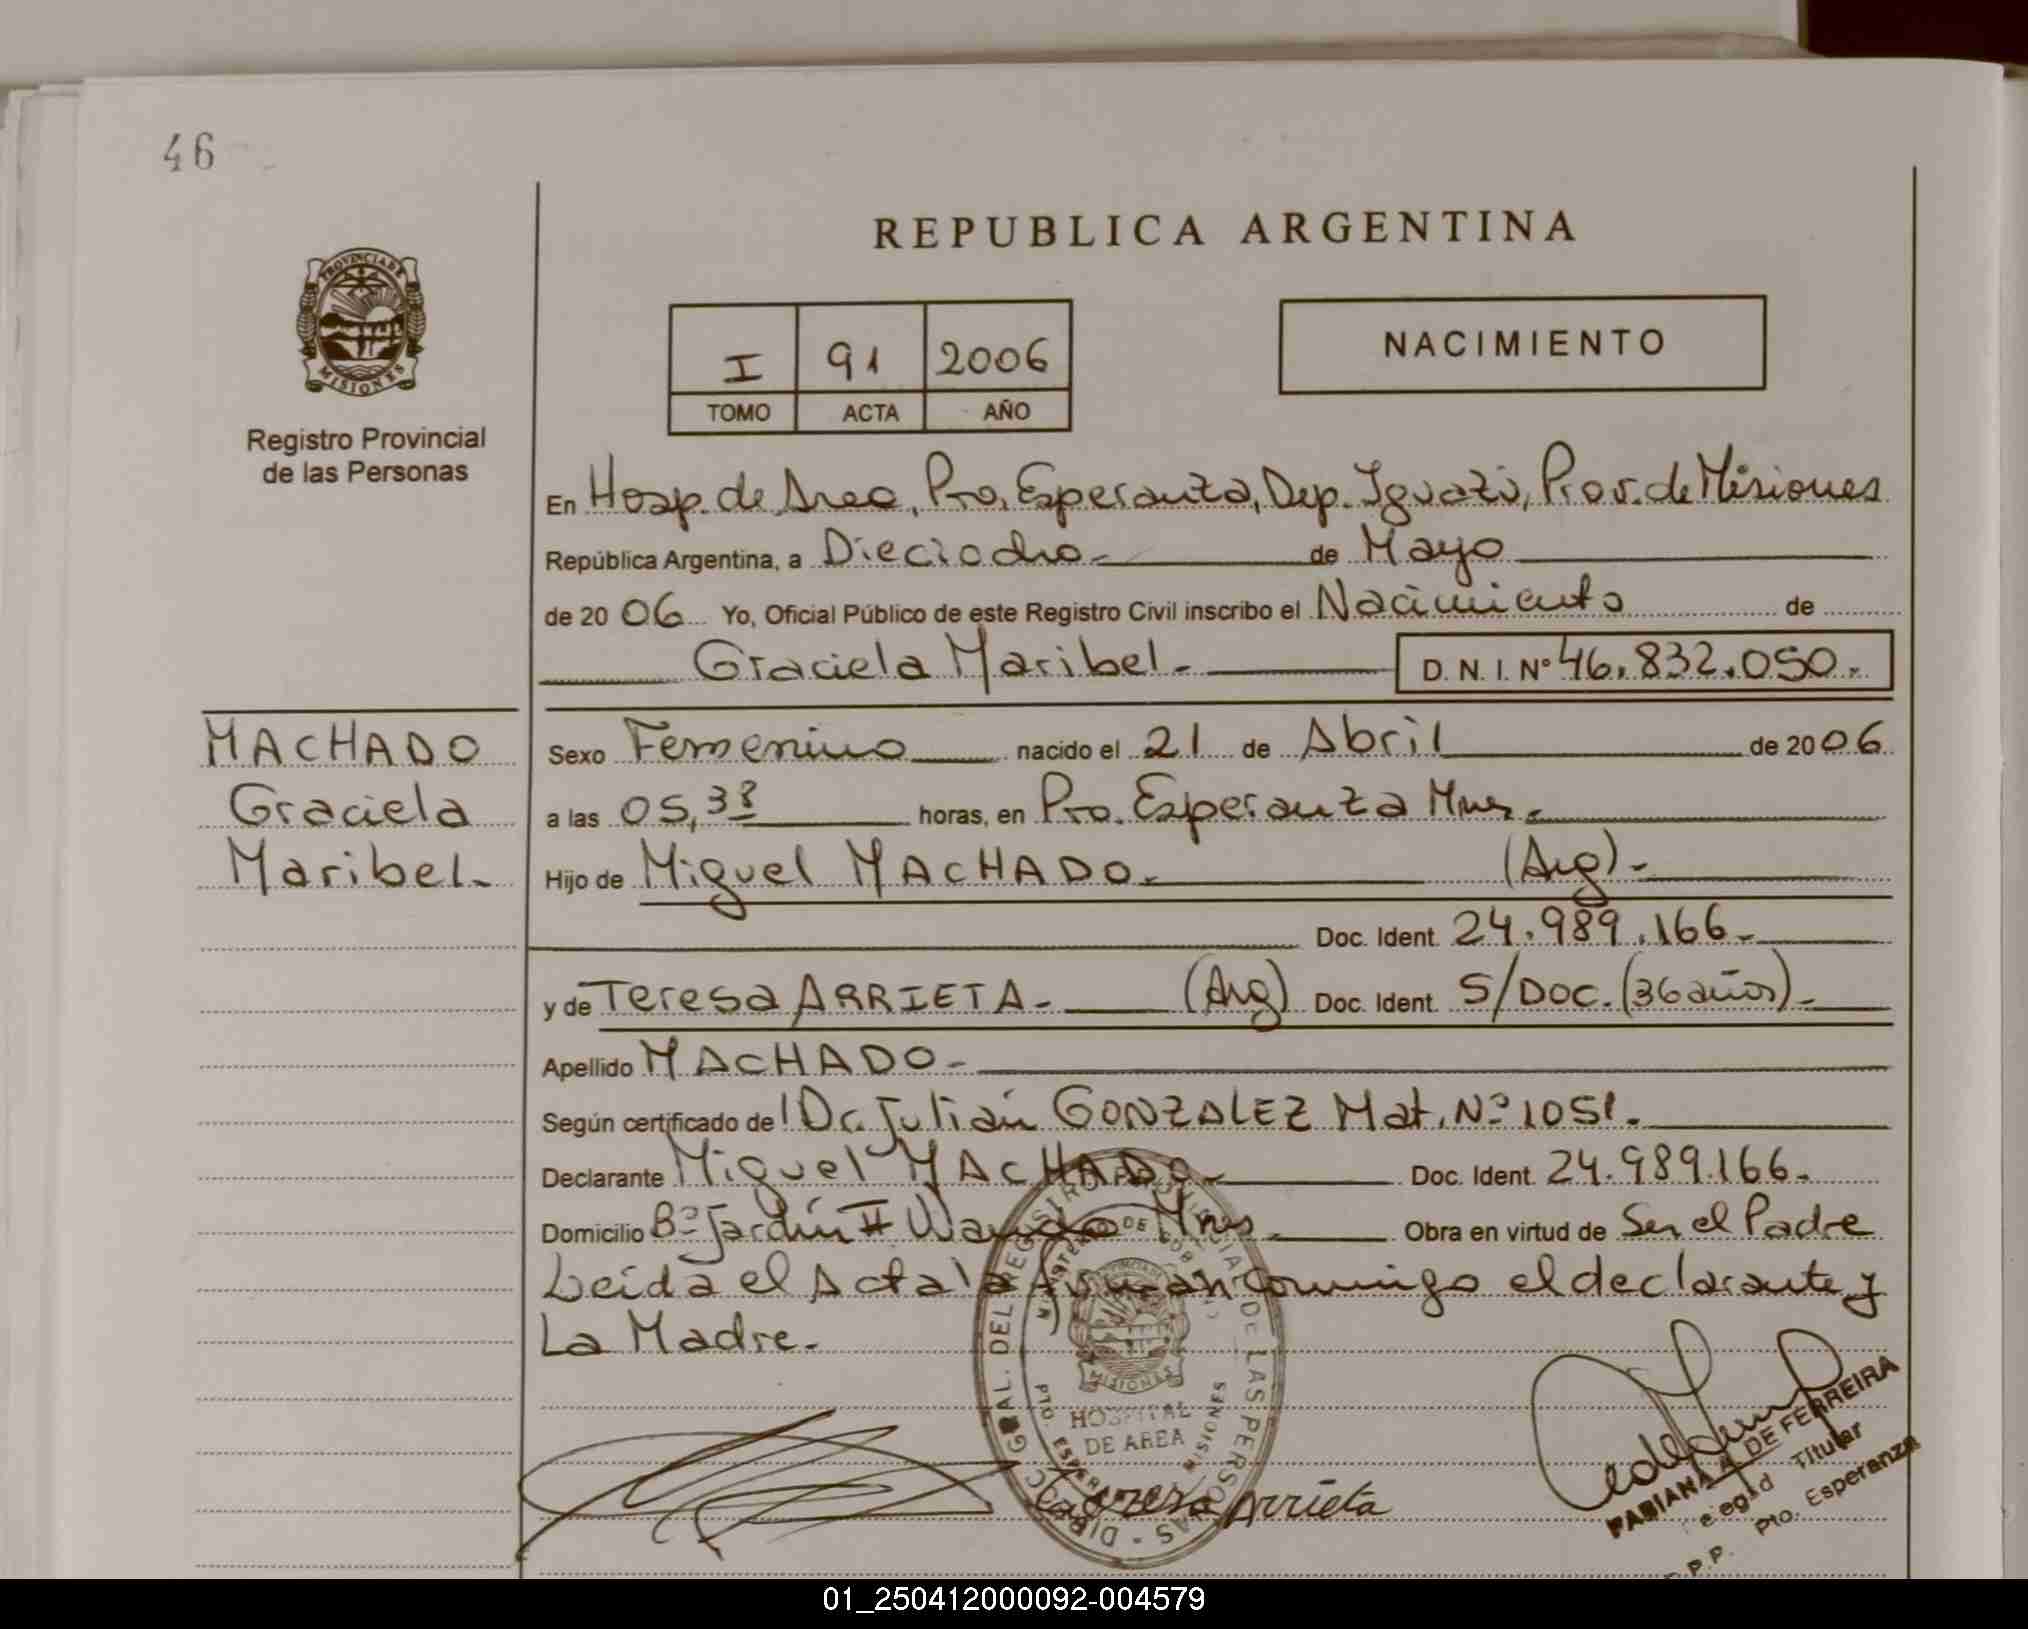 46
REPUBLICA ARGENTINA
PROVINCIA DE
MISIONES
Registro Provincial
de las Personas
I 91 2006
TOMO ACTA AÑO
NACIMIENTO
En Hosp. de Area, Pto. Esperanza, Dep. Iguazú, Prov. de Misiones
República Argentina, a Dieciocho.- de Mayo
de 20 06 Yo, Oficial Público de este Registro Civil inscribo el Nacimiento de
Graciela Maribel.- D. N. I. Nº 46.832.050.-
MACHADO
Graciela
Maribel.-
Sexo Femenino nacido el 21 de Abril de 20 06
a las 05,38 horas, en Pto. Esperanza Mnes.-
Hijo de Miguel MACHADO.- (Arg).-
Doc. Ident. 24.989.166.-
y de Teresa ARRIETA.- (Arg) Doc. Ident. S/DOC. (36 años).-
Apellido MACHADO.-
Según certificado de Dr. Julián GONZALEZ Mat. Nº 1051.-
Declarante Miguel MACHADO.- Doc. Ident. 24.989.166.-
Domicilio Bº Jardín II Wanda Mnes Obra en virtud de Ser el Padre
Leida el Acta la firman conmigo el declarante y
La Madre.-
DIRECC. GRAL. DEL REGISTRO PROVINCIAL DE LAS PERSONAS
MINISTERIO DE GOBIERNO
PROVINCIA DE
MISIONES
HOSPITAL
DE AREA
PTO. ESPERANZA MISIONES
Arrieta
FABIANA A. DE FERREIRA
Titular
Pto. Esperanza
01_250412000092-004579